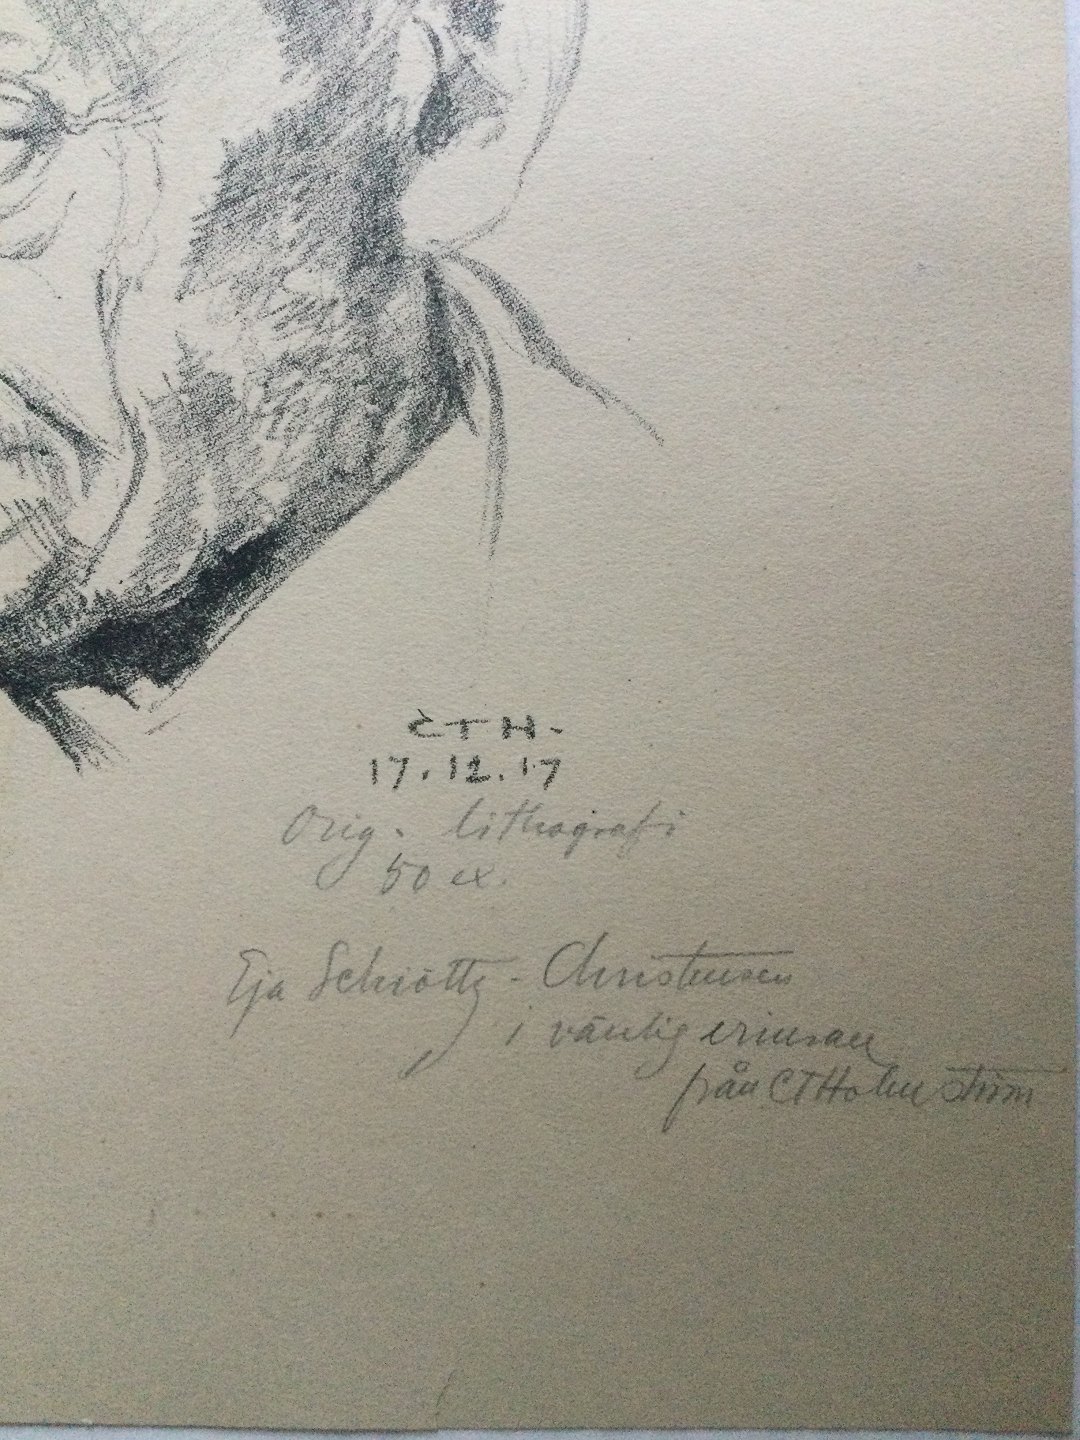 CTH-
17.12.17
Orig. lithografi
50 ex.
Eja Schiöttz-Christensen
i vänlig erinran
från CTHolmström